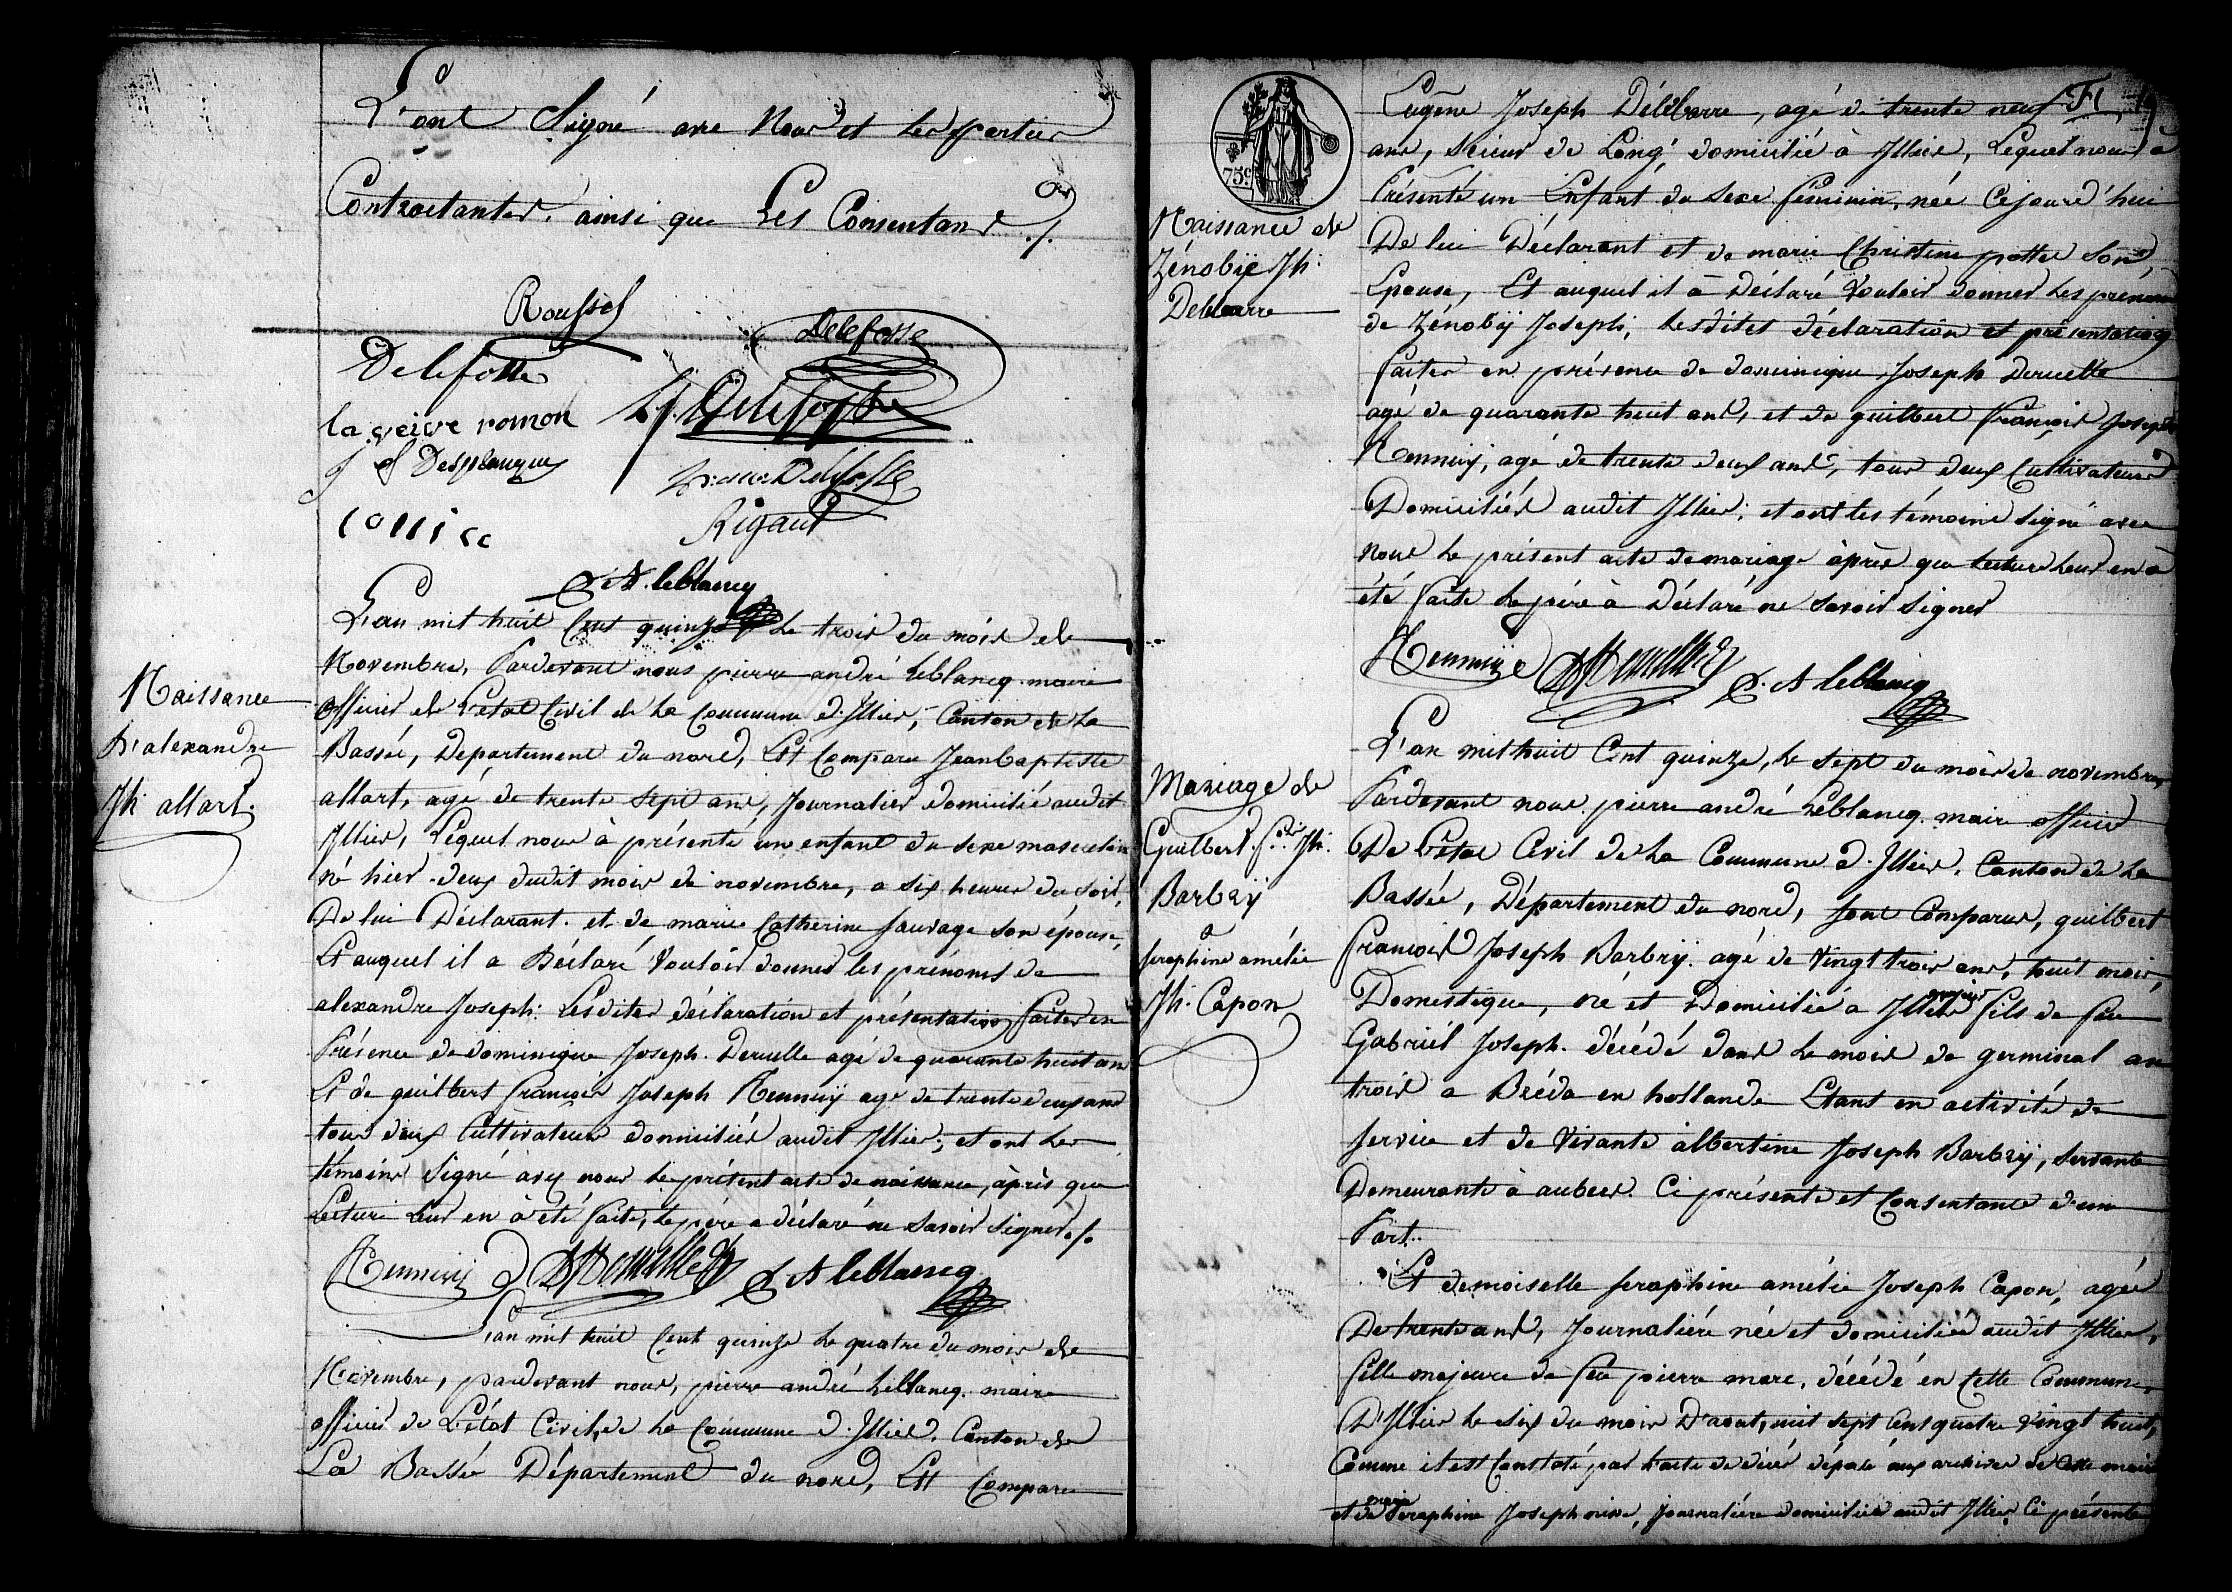 L'ont Signé avec Nous et les parties
Contractantes, ainsi que Les Consentans ./.
Roussel
Delefosse
Delefosse
la veive romon
L J Delefosse
J Desplanques
Delefosse
Rigaut
P. A. leblancq
Naissance
D'alexandre
Jh: allart.
L'an mil huit Cent quinze Le trois du mois de
Novembre, Pardevant nous pierre andré Leblancq maire
officier de L'état Civil de La Commune d'Illier, Canton de La
Bassée, Departement du nord, Est Comparu Jeanbaptiste
allart, agé de trente sept ans, Journalier domicilié audit
Illier, Lequel nous à présenté un enfant du sexe masculin
né hier deux dudit mois de novembre, a six heures du soir,
De lui Déclarant et de marie Catherine Sauvage son épouse,
Et auquel il a Déclaré Vouloir donner les prénoms de
alexandre Joseph. Lesdites déclaration et présentation faites en
Présence de dominique Joseph Deruelle agé de quarante huit ans
Et de guilbert françois Joseph Hennuÿ agé de trente deux ans
tous deux Cultivateurs domiciliés audit Illier; et ont Les
témoins Signé avec nous Le présent acte de naissance, après que
Lecture Leur en à été faite, Le père a déclaré ne savoir signer ./.
Hennuÿ P. A leblancq
L'an mil huit Cent quinze Le quatre du mois de
Novembre, pardevant nous, pierre andré Leblancq maire
officier de L'état Civil, de La Commune d'Illier, Canton de
La Bassée Département du nord, Est Comparu
75c
F
Naissance de
Zénobÿe Jh:
Delebarre
Eugène Joseph Délébarre, agé de trente neuf
ans, scieur de Long, domicilié à Illier, Lequel nous à
Présenté un Enfant du sexe féminin, née Cejourd'hui
De lui Déclarant et de marie Christine potte Son
Epouse, Et auquel il à Déclaré Vouloir donner Les prénoms
de Zénobÿ Joseph, Lesdites déclaration et présentation
faites en présence de dominique Joseph Deruelle
agé de quarante huit ans, et de guilbert françois Joseph
Hennuÿ, agé de trente deux ans, tous deux Cultivateurs
Domiciliés audit Illier; et ont les témoins Signé avec
nous Le présent acte de mariage après que Lecture Leur en à
été faite Le père à Déclaré ne savoir signer
Hennuÿ P. A leblancq
Mariage de
Guilbert fois Jh:
Barbrÿ
&
Seraphine amélie
Jh: Capon
L'an mil huit Cent quinze, le sept du mois de novembre,
Pardevant nous pierre andré Leblancq maire officier
De L'état Civil de La Commune d'Illier, Canton de La
Bassée, Département du nord, sont Comparus, guilbert
françois Joseph Barbrÿ agé de Vingt trois ans, huit mois,
Domestique, né et Domicilié a Illier majeur fils de feu
Gabriël Joseph. décédé dans Le mois de germinal an
trois a Bréda en hollande Etant en activité de
service et de Vivante albertine Joseph Barbrÿ, servante
Demeurante à aubers. Ci présente et Consentante d'une
Part.
Et demoiselle seraphine amélie Joseph Capon, agée
De trente ans, Journalière née et domiciliée audit Illier,
fille majeure de feu pierre marc, décédé en Cette Commune
D'Illier le six du mois D'aout, mil sept Cent quatre vingt huit,
Comme il est Constaté par L'acte de décès déposé aux archives de cette mairie
et de marie Seraphine Joseph , Journalière domiciliée audit Illier Ci présente